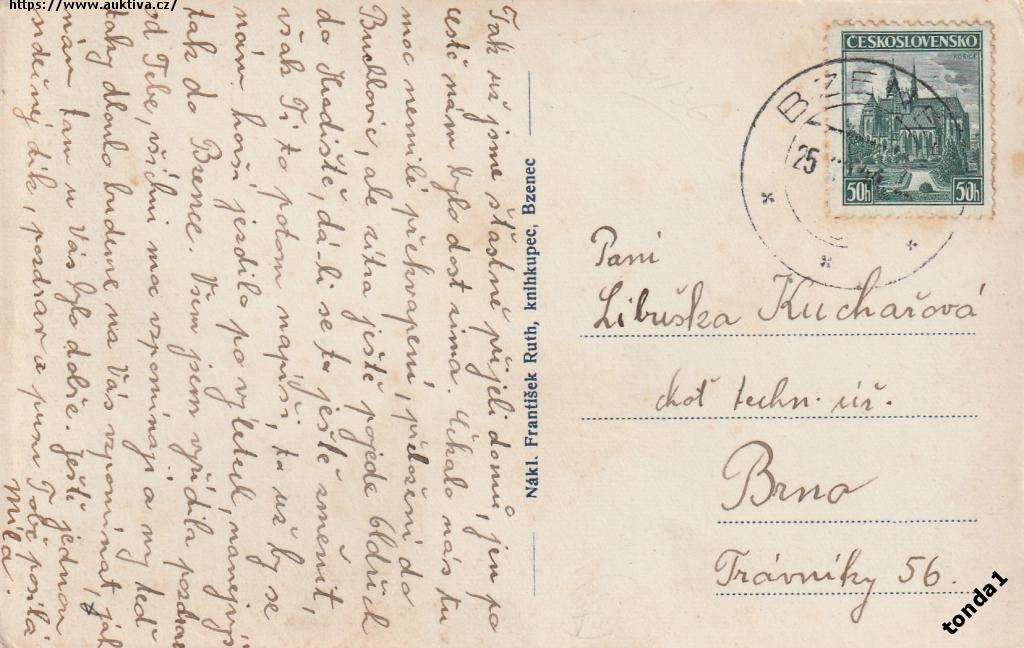 https://www.auktiva.cz/
Tak už jsme šťastně přijeli domů, jen po
cestě nám bylo dost zima. Čekalo nás tu
moc nemilé překvapení, přeložení do
Buchlovic, ale zítra ještě pojede Oldřich
do Hradiště, dá-li se to ještě změnit,
však Ti to potom napíši, to už by se
nám horší jezdilo po výletech, nanejvýš
tak do Bzence. Všem jsem vyřídila pozdrav
od Tebe, všichni moc vzpomínají a my též
taky dlouho budeme na Vás vzpomínat, jak
nám tam u Vás bylo dobře. Ještě jednou
srdečný dík, pozdrav a pusu Tobě posílá
Míla.
Nákl. František Ruth, knihkupec, Bzenec
ČESKOSLOVENSKO
KOŠICE
50h
50h
BZE
25
Paní
Libuška Kuchařová
choť techn. úř.
Brno
Trávníky 56.
tonda1